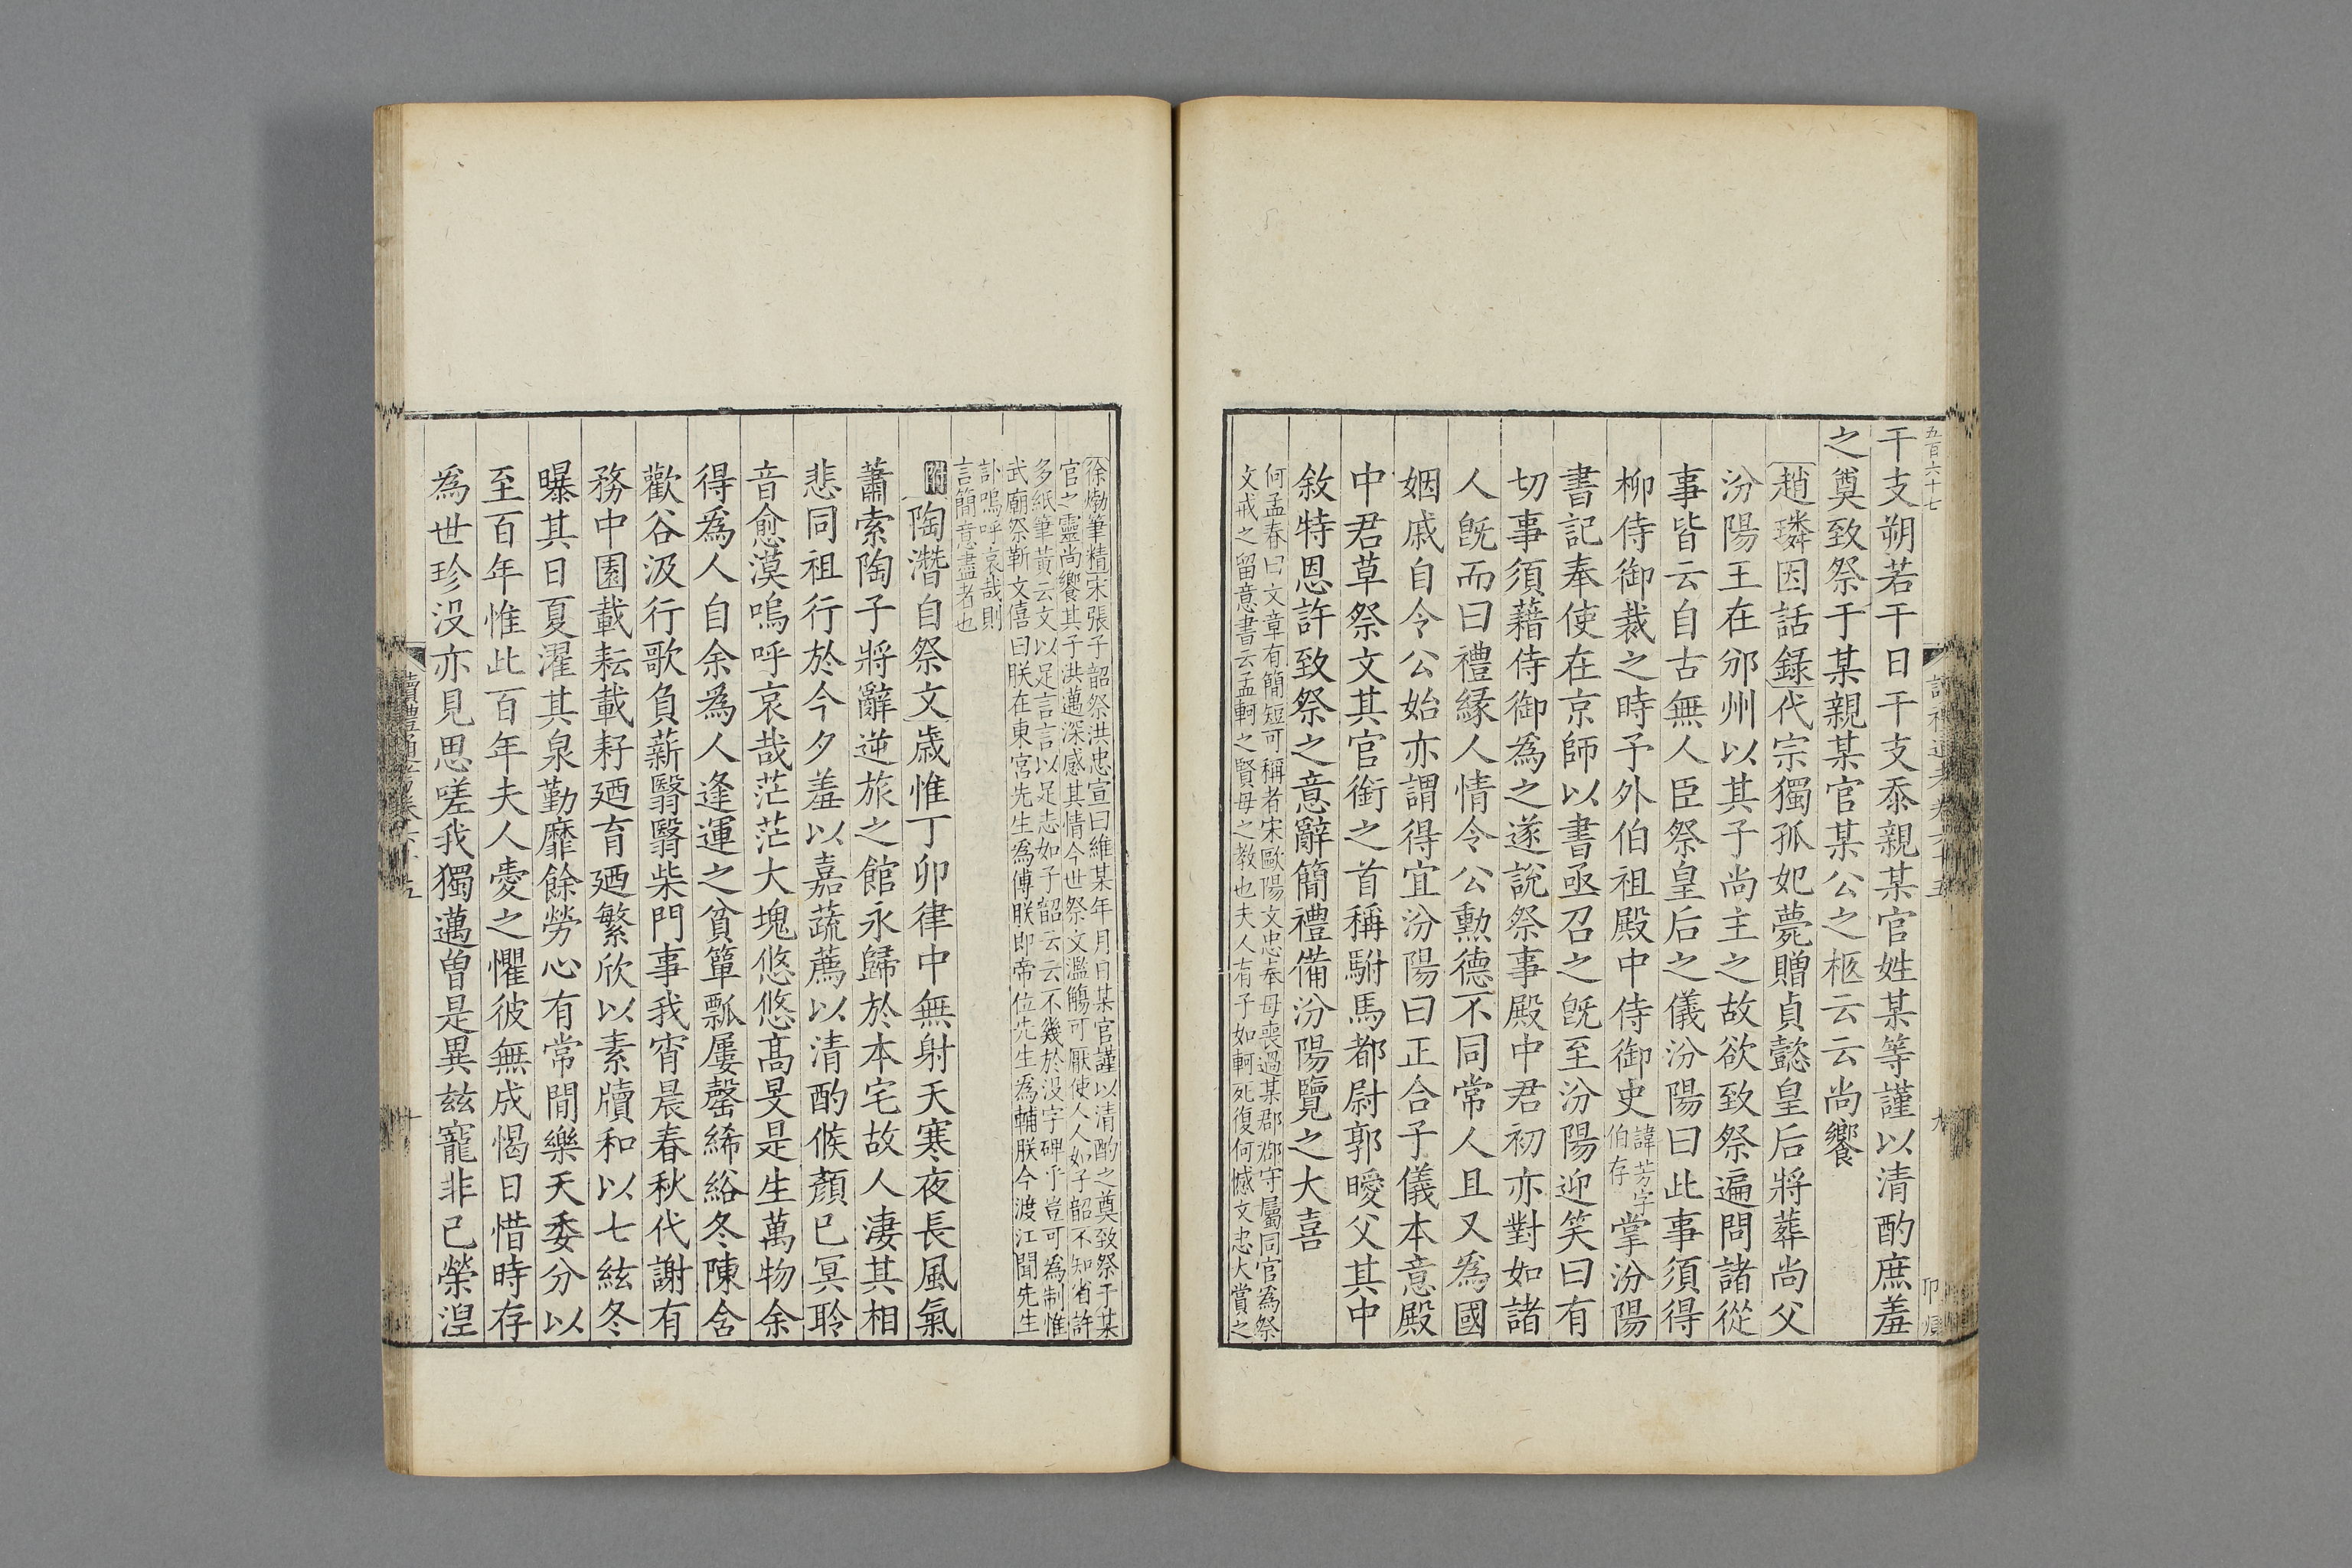 五百六十七
干支朔若干日干支忝親某官姓某等謹以清酌庶羞
之奠致祭于某親某官某公之柩云云尚饗
趙璘因話録代宗獨孤妃薨贈貞懿皇后將葬尚父
汾陽王在邠州以其子尚主之故欲致祭遍問諸從
事皆云自古無人臣祭皇后之儀汾陽曰此事須得
柳侍御裁之時予外伯祖殿中侍御史諱芳字伯存掌汾陽
書記奉使在京師以書亟召之旣至汾陽迎笑曰有
切事須藉侍御爲之遂說祭事殿中君初亦對如諸
人旣而曰禮緣人情令公勳德不同常人且又爲國
姻戚自令公始亦謂得宜汾陽曰正合子儀本意殿
中君草祭文其官銜之首稱駙馬都尉郭曖父其中
敘特恩許致祭之意辭簡禮備汾陽覽之大喜
何孟春曰文章有簡短可稱者宋歐陽文忠奉母喪過某郡郡守屬同官爲祭
文戒之留意書云孟軻之賢母之教也夫人有子如軻死復何憾文忠大賞之
徐𤊹筆精宋張子韶祭洪忠宣曰維某年月日某官謹以清酌之奠致祭于某
官之靈尚饗其子洪邁深感其情今世祭文濫觴可厭使人人如子韶不知省許
多紙筆黃云文以足言言以足志如子韶云云不幾於没字碑乎豈可爲制惟
武廟祭靳文僖曰朕在東宮先生爲傅朕即帝位先生爲輔朕今渡江聞先生
訃嗚呼哀哉則
言簡意盡者也
附陶潛自祭文歲惟丁卯律中無射天寒夜長風氣
蕭索陶子將辭逆旅之館永歸於本宅故人淒其相
悲同祖行於今夕羞以嘉蔬薦以清酌候顏已冥聆
音愈漠嗚呼哀哉茫茫大塊悠悠高旻是生萬物余
得爲人自余爲人逢運之貧簞瓢屢罄絺綌冬陳含
歡谷汲行歌負薪翳翳柴門事我宵晨春秋代謝有
務中園載耘載耔廼育廼繁欣以素牘和以七絃冬
曝其日夏濯其泉勤靡餘勞心有常閒樂天委分以
至百年惟此百年夫人愛之懼彼無成愒日惜時存
爲世珍没亦見思嗟我獨邁曾是異玆寵非已榮湼